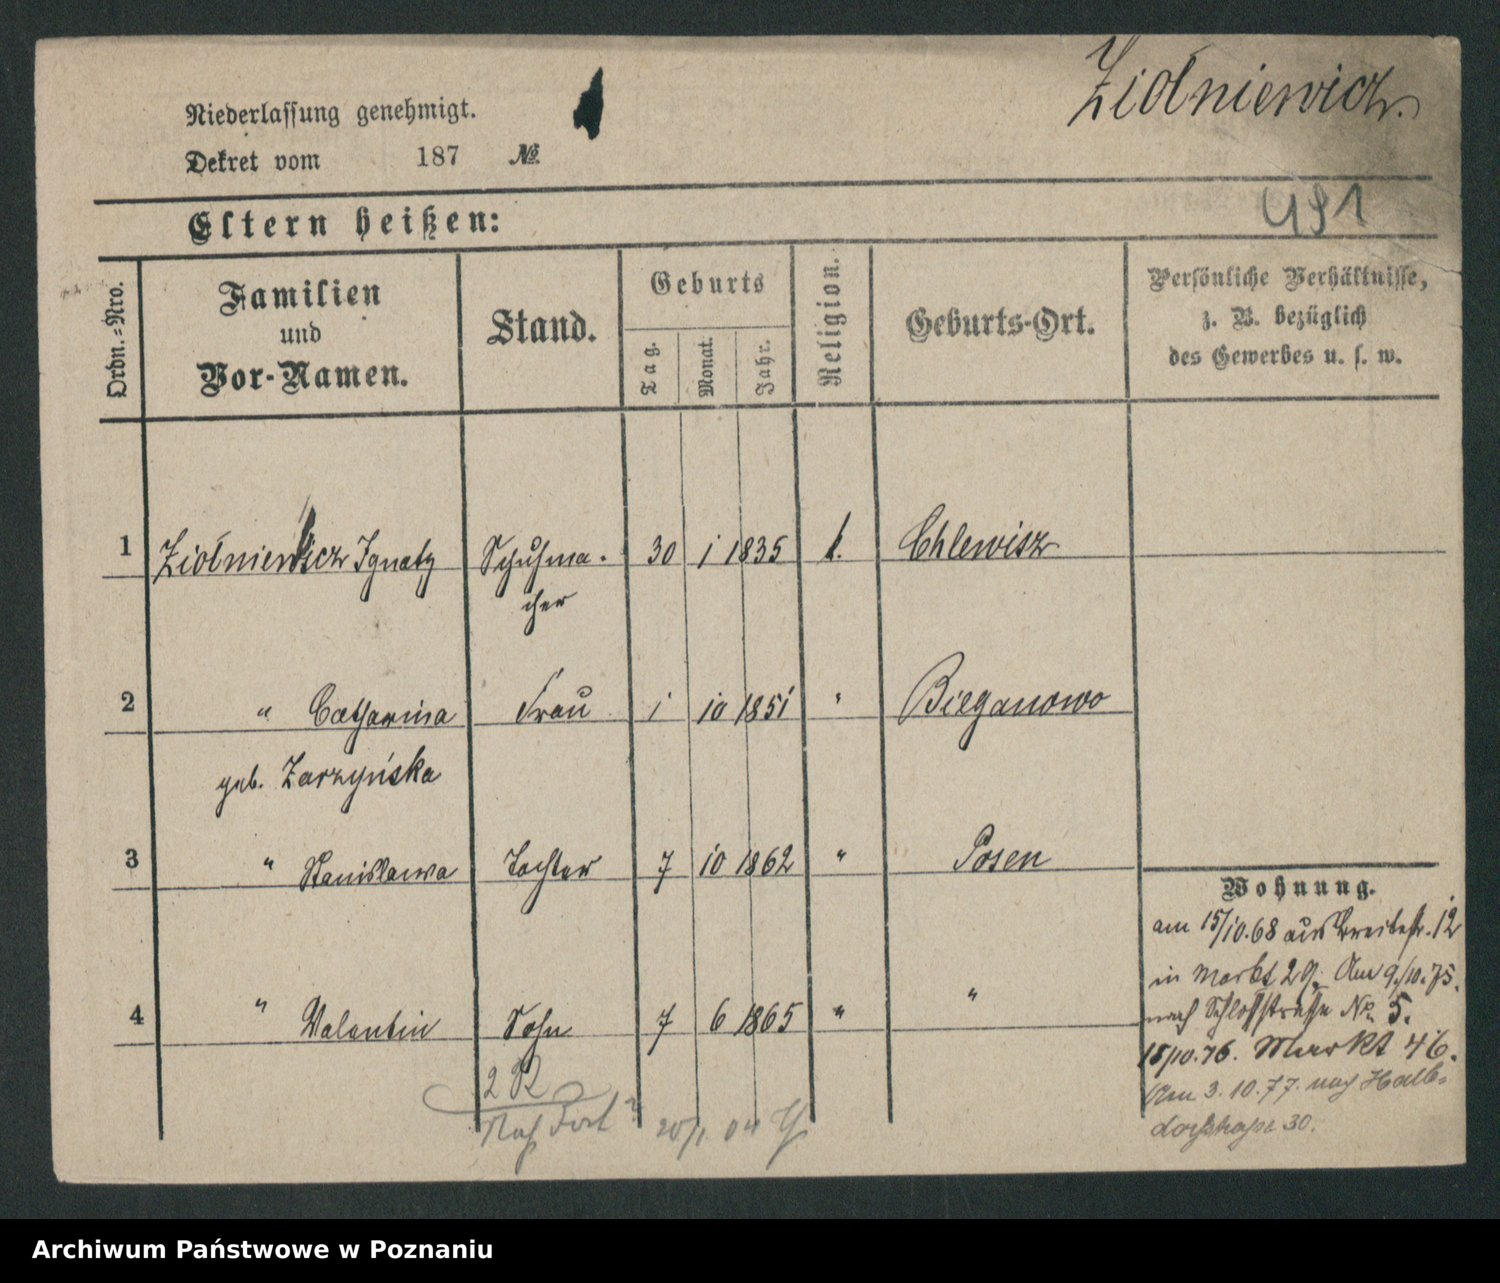 Ziołniewicz.
Niederlassung genehmigt.
Dekret vom 187 №
491
Eltern heißen:
Ordn.=Nro.
Familien
und
Vor-Namen.
Stand.
Geburts
Tag.
Monat.
Jahr.
Religion.
Geburts-Ort.
Persönliche Verhältnisse,
z. B. bezüglich
des Gewerbes u. s. w.
1 Ziołniewicz Ignatz Schuhma- 30 1 1835 k. Chlewisz
cher
2 " Catharina Frau 1 10 1851 " Bieganowo
geb. Zarzyńska
3 " Stanislawa Tochter 7 10 1862 " Posen
4 " Valentin Sohn 7 6 1865 " "
Wohnung.
am 15/10.68 aus Breitestr. 12
in Markt 29. Am 9/10.75.
nach Schloßstraße No. 5.
15/10.76. Markt 46.
Am 3.10.77. nach Halb-
dorfstraße 30.
2
20/1 04
Archiwum Państwowe w Poznaniu